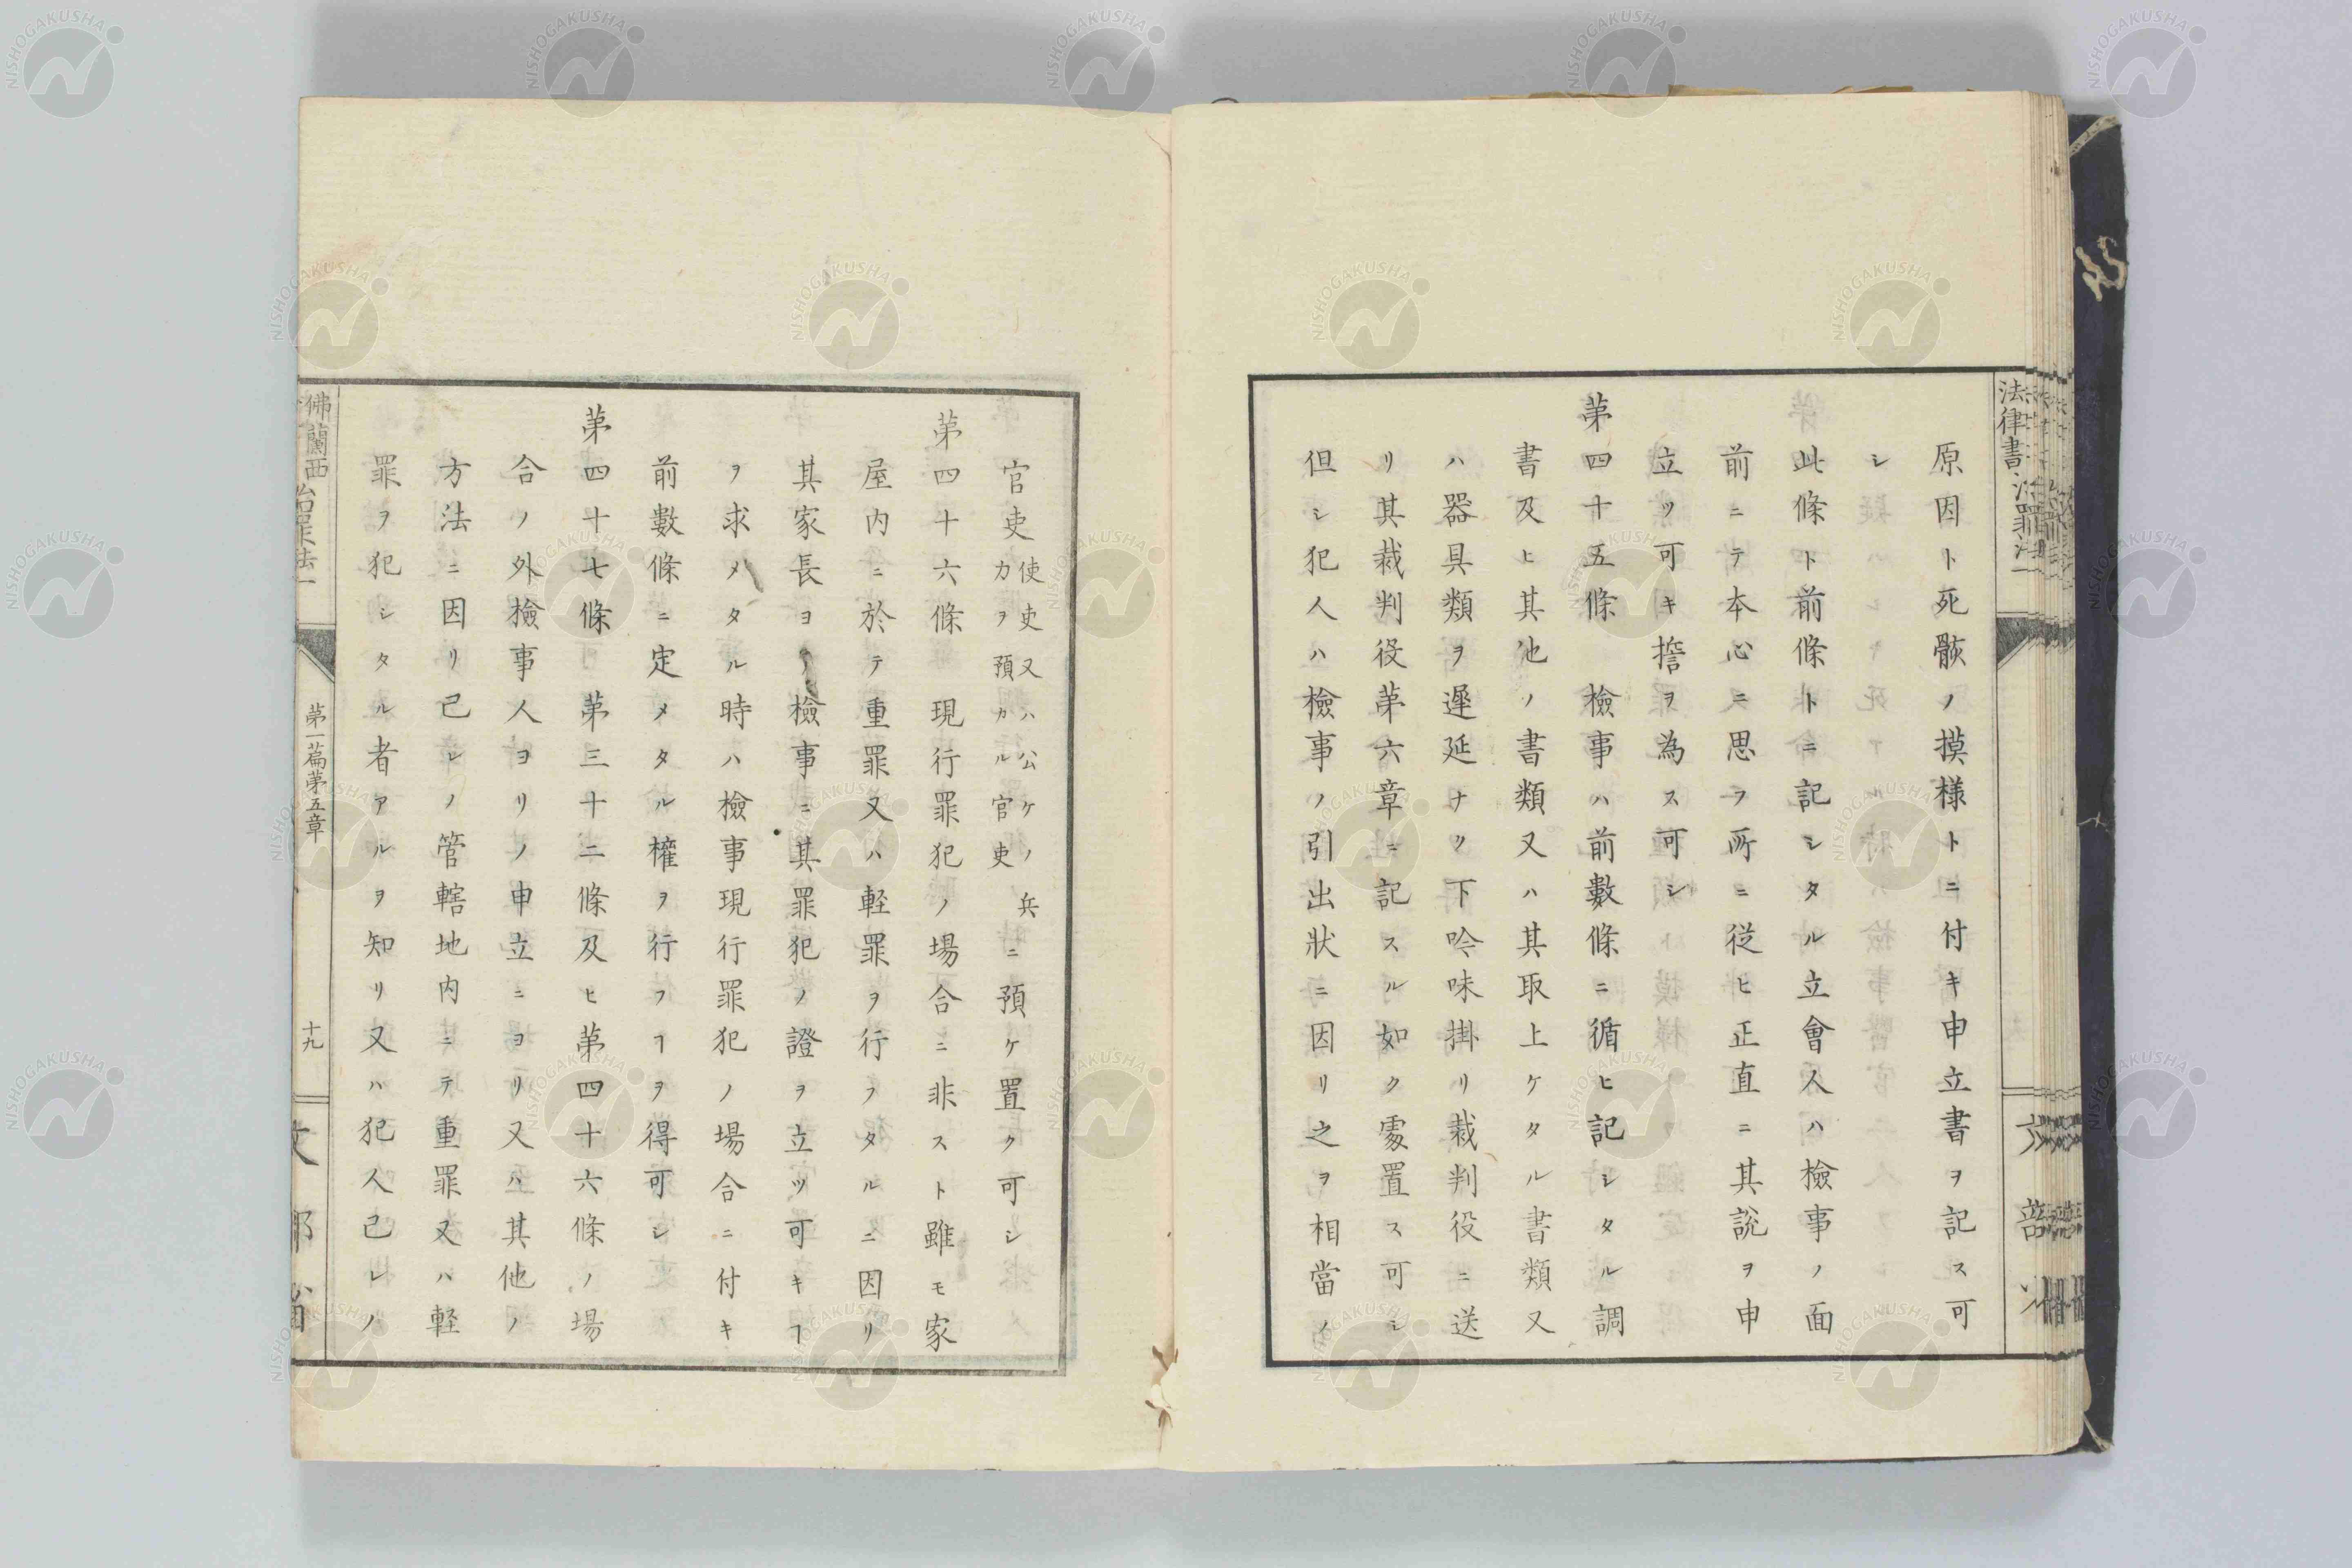 原因ト死骸ノ摸様トニ付キ申立書ヲ記ス可
シ
此條ト前條トニ記シタル立會人ハ檢事ノ面
前ニテ本心ニ思フ所ニ従ヒ正直ニ其説ヲ申
立ツ可キ誓ヲ為ス可シ
第四十五條 檢事ハ前數條ニ循ヒ記シタル調
書及ヒ其他ノ書類又ハ其取上ケタル書類又
ハ器具類ヲ遲延ナク下吟味掛リ裁判役ニ送
リ其裁判役第六章ニ記スル如ク處置ス可シ
但シ犯人ハ檢事ノ引出状ニ因リ之ヲ相當ノ
官吏使吏又ハ公ケノ兵力ヲ預カル官吏ニ預ケ置ク可シ
第四十六條 現行罪犯ノ場合ニ非スト雖モ家
屋内ニ於テ重罪又ハ軽罪ヲ行フタルニ因リ
其家長ヨリ檢事ニ其罪犯ノ證ヲ立ツ可キヿ
ヲ求メタル時ハ檢事現行罪犯ノ場合ニ付キ
前數條ニ定メタル權ヲ行フヿヲ得可シ
第四十七條 第三十二條及ヒ第四十六條ノ場
合ノ外檢事人ヨリノ申立ニヨリ又ハ其他ノ
方法ニ因リ己レノ管轄地内ニテ重罪又ハ軽
罪ヲ犯シタル者アルヲ知リ又ハ犯人己レノ
佛蘭西治罪法一
第一篇第五章
十九
文部省
法律書
NISHOGAKUSHA